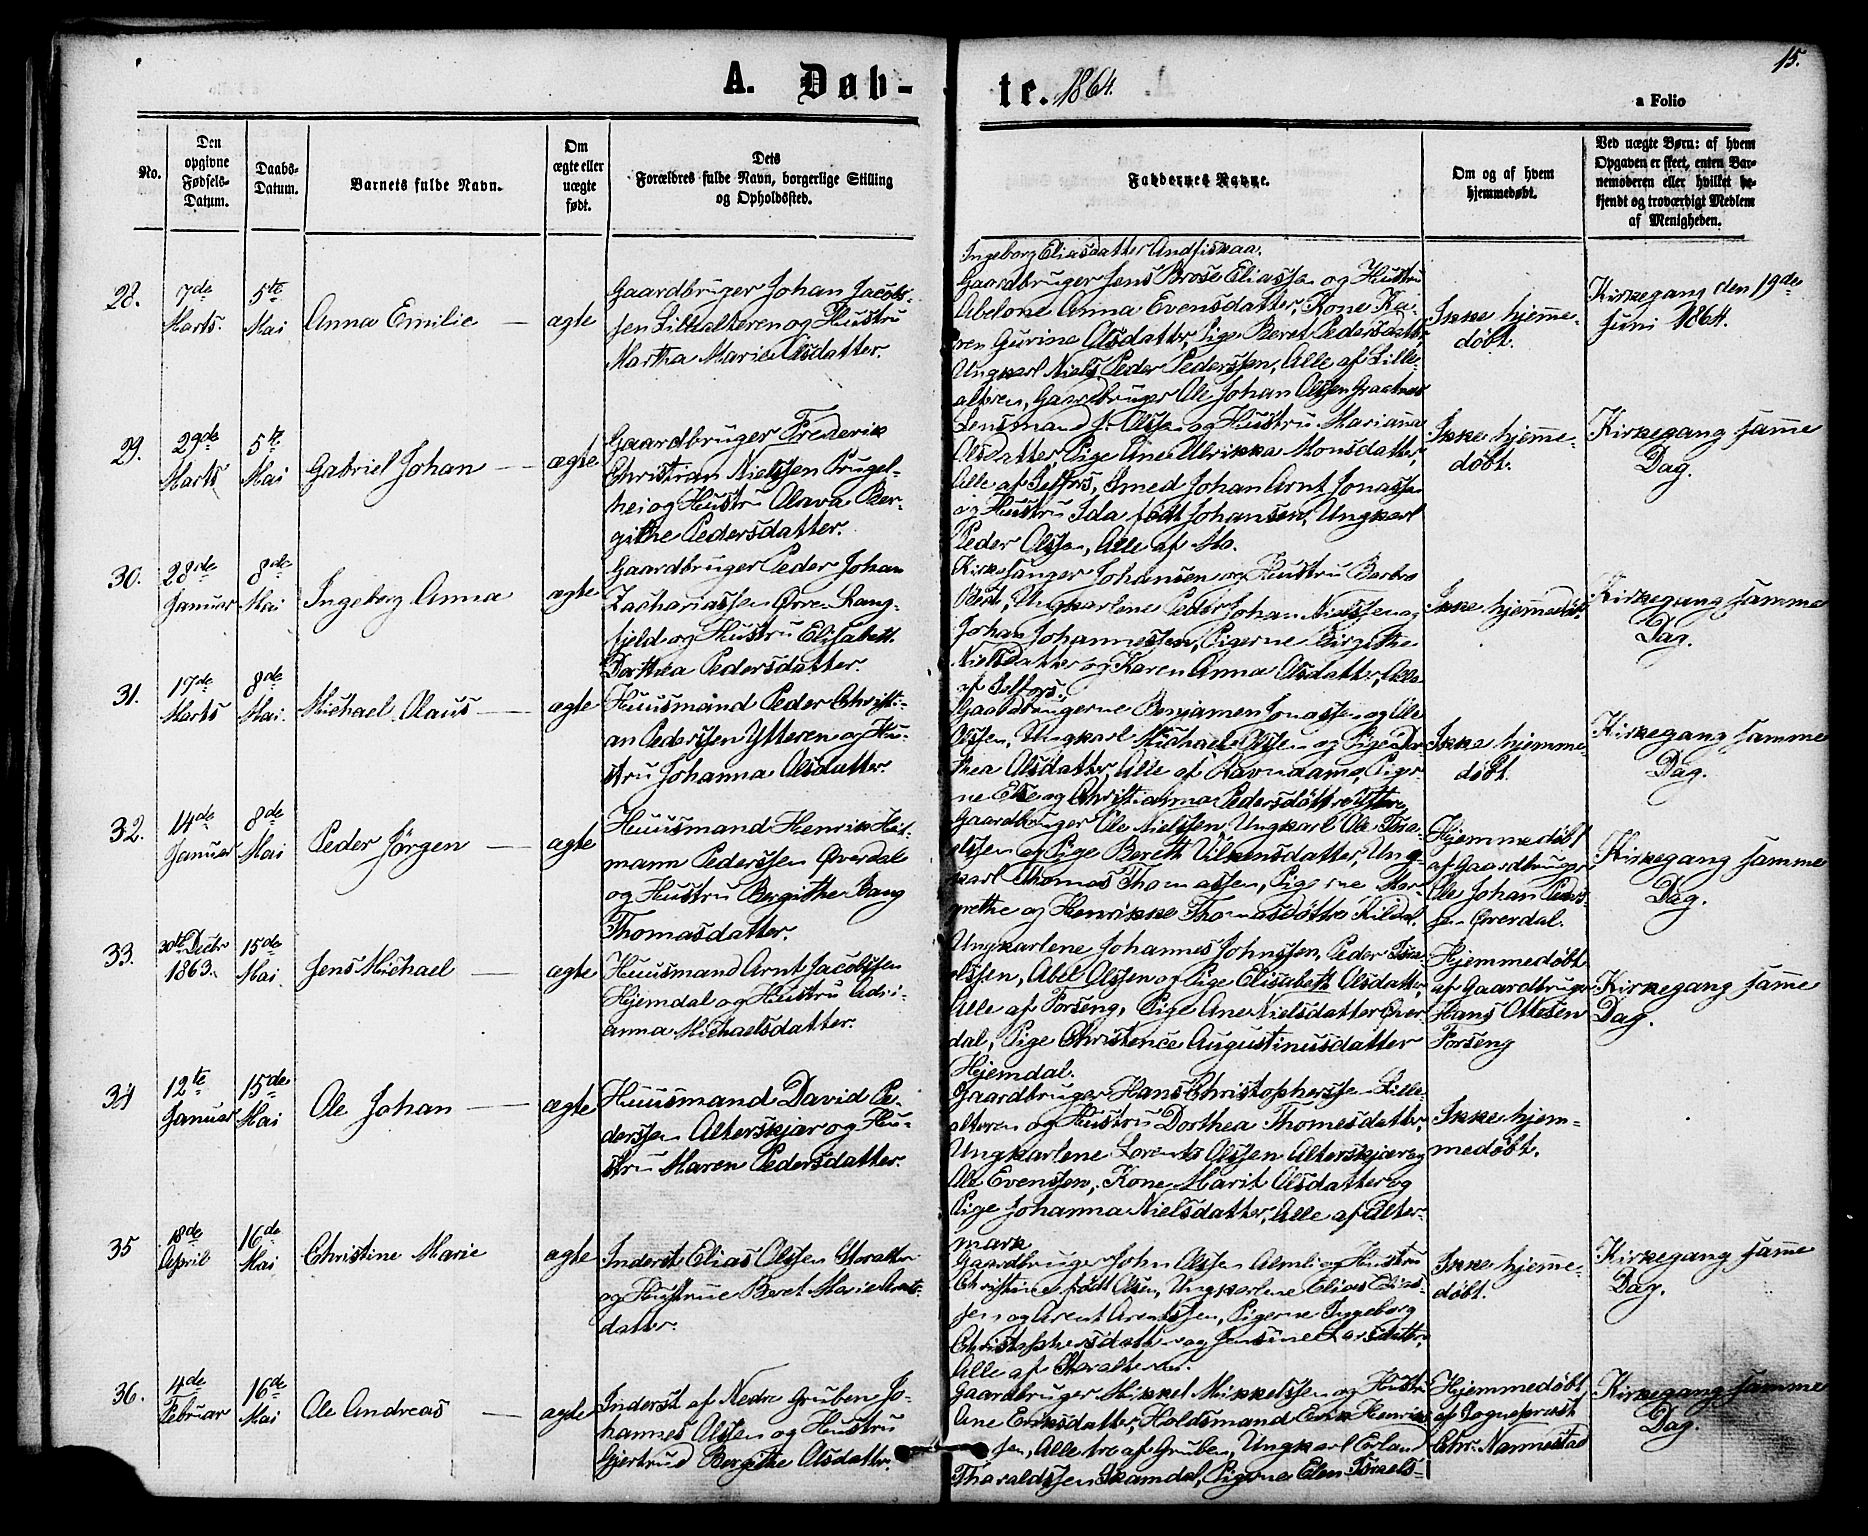 15.
A. Døb-
te. 1864.
a Folio
No.
Den
opgivne
Fødsels-
Datum.
Daabs-
Datum.
Barnets fulde Navn.
Om
ægte eller
uægte
født.
Dets
Forældres fulde Navn, borgerlige Stilling
og Opholdssted.
Faddernes Navne.
Om og af hvem
hjemmedøbt.
Ved uægte Børn: af hvem
Opgaven er skeet, enten Bar-
nemoderen eller hvilket be-
kjendt og troværdigt Medlem
af Menigheden.
28.
7de
Marts.
5te
Mai
Anna Emilie
ægte
Gaardbruger Johan Jacobs-
sen Lillealteren og Hustru
Martha Marie Olsdatter.
Ingeborg Eliasdatter Andfiskaa.
Gaardbruger Jens Brose Eliassen og Hustru
Abelone Anna Evensdatter, Kone Ka-
ren Gurine Olsdatter, Pige Beret Pedersdatter,
Ungkarl Niels Peder Pederssen, Alle af Lille-
alteren, Gaardbruger Ole Johan Olssen Graatnes
Ikke hjemme-
døbt.
Kirkegang den 19de
Juni 1864.
29.
29de
Marts
5te
Mai
Gabriel Johan
ægte
Gaardbruger Frederik
Christian Nielssen Prugel-
hei og Hustru Olava Ber-
githe Pedersdatter.
Lensmand J. Olssen og Hustru Mariana
Olsdatter, Pige Ane Ulrikka Monsdatter,
Alle af Selfors, Smed Johan Arnt Jonassen
og Hustru Ida født Johansen, Ungkarl
Peder Olssen, Alle af Mo.
Ikke hjemme-
døbt.
Kirkegang samme
Dag.
30.
28de
Januar
8de
Mai
Ingeborg Anna
ægte
Gaardbruger Peder Johan
Zachariassen Øvre Lang-
fjeld og Hustru Elisabeth
Dorthea Pedersdatter.
Kirkesanger Johansen og Hustru Berbro
Ungkarlene Peder Johan Nielssen og
Johan Johannessen, Pigerne Birgithe
Nielsdatter og Karen Anna Olsdatter, Alle
af Selfors.
Ikke hjemmedøbt
Kirkegang samme
Dag.
31.
17de
Marts
8de
Mai.
Michael Olaus
ægte
Huusmand Peder Christi-
an Pederssen Ytteren og Hu-
stru Johanna Olsdatter.
Gaardbrugerne Benjamen Jonassen og Ole
Olssen, Ungkarl Michael Olssen og Pige Dor-
thea Olsdatter, Alle af Ravndams, Piger-
ne Else og Christianna Pedersdøttre Ytteren
Ikke hjemme-
døbt.
Kirkegang samme
Dag.
32.
14de
Januar
8de
Mai
Peder Jørgen
ægte
Huusmand Henrik Heit-
mann Pederssen Øverdal
og Hustru Bergithe Bang
Thomasdatter.
Gaardbruger Ole Nielssen, Ungkarl Ole Isra-
elssen og Pige Bereth Vilkensdatter, Ung-
karl Thomas Thomassen, Pigerne Mar-
grethe og Henrikke Thomasdøttre Kildal.
Hjemmedøbt
af Gaardbruger
Ole Johan Peders-
sen Øverdal.
Kirkegang samme
Dag.
33.
30te Decbr
1863.
15de
Mai.
Jens Michael
ægte
Huusmand Arnt Jacobssen
Hjemdal og Hustru Adri-
anna Michaelsdatter.
Ungkarlene Johannes Johnssen, Peder Isra-
elssen, Abel Olssen og Pige Elisabeth Olsdatter,
Alle af Forseng, Pige Ane Nielsdatter Øver-
dal, Pige Christence Augustinusdatter
Hjemdal.
Hjemmedøbt
af Gaardbruger
Hans Ottesen
Forseng
Kirkegang samme
Dag.
34
12te
Januar
15de
Mai
Ole Johan
ægte
Huusmand David Pe-
derssen Alterskjær og Hu-
stru Maren Pedersdatter.
Gaardbruger Hans Christopherssen Lille-
alteren og Hustru Dorthea Thomesdatter,
Ungkarlene Lorents Olssen Alterskjær og
Ole Evenssen, Kone Marit Olsdatter og
Pige Johanna Nielsdatter, Alle af Alter-
mark
Ikke hjem-
medøbt.
35
18de
April
16de
Mai
Christine Marie
ægte
Inderst Elias Olssen Storalter
og Hustrue Beret Marie Mats-
datter.
Gaardbruger John Olssen Almli og Hustru
Christine født Olsen, Ungkarlene Elias Elias-
sen og Arent Arentssen, Pigerne Ingeborg
Christophersdatter og Jensine Larsdatter,
Alle af Storalteren.
Ikke hjemme-
døbt.
Kirkegang samme
Dag.
36.
4de
Februar
16de
Mai
Ole Andreas
ægte
Inderst af Nedre Gruben Jo-
hannes Olssen og Hustru
Gjertrud Bergithe Olsdatter.
Gaardbruger Mikkel Mikkelssen og Hustru
Ane Eriksdatter, Holdsmand Erik Henrik-
sen, Alle tre af Gruben, Ungkarl Erland
Tharaldssen Skamdal, Pigerne Elen Israels-
Hjemmedøbt
af Sognepræst
Chr. Nannestad
Kirkegang samme
Dag.